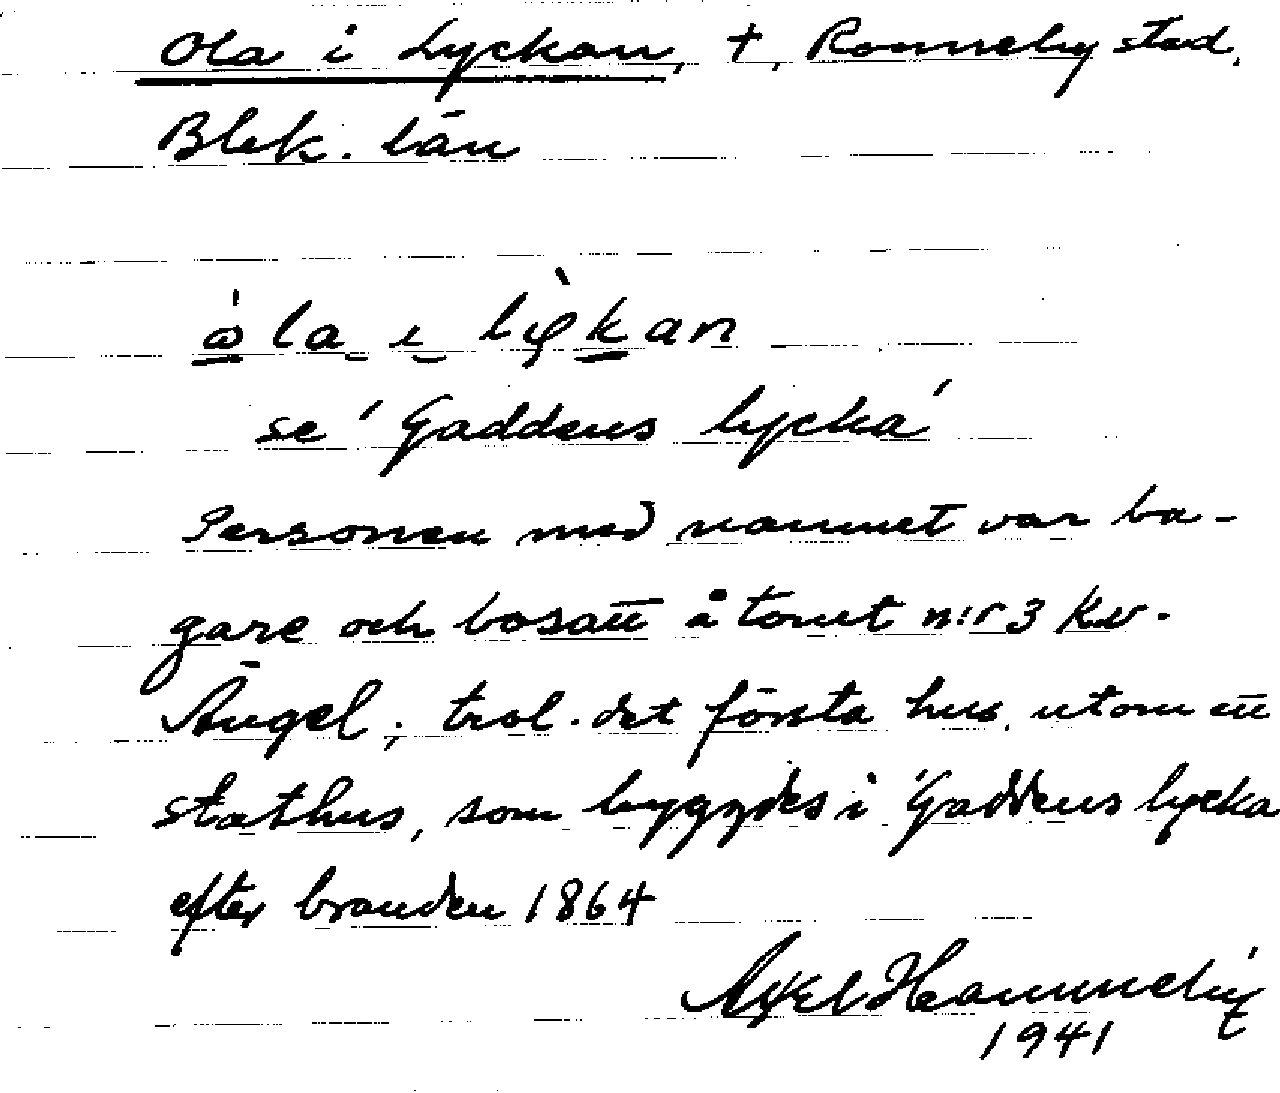 Ola i Lyckan, †, Ronneby stad.
Blek. län
se 'Gaddens lycka'
Personen med namnet var ba-
gare och bosatt å tomt n:r 3 kv.
Ängel; trol. det första hus, utom ett
stathus, som byggdes i 'Gaddens lycka
efter branden 1864
Axel
1941